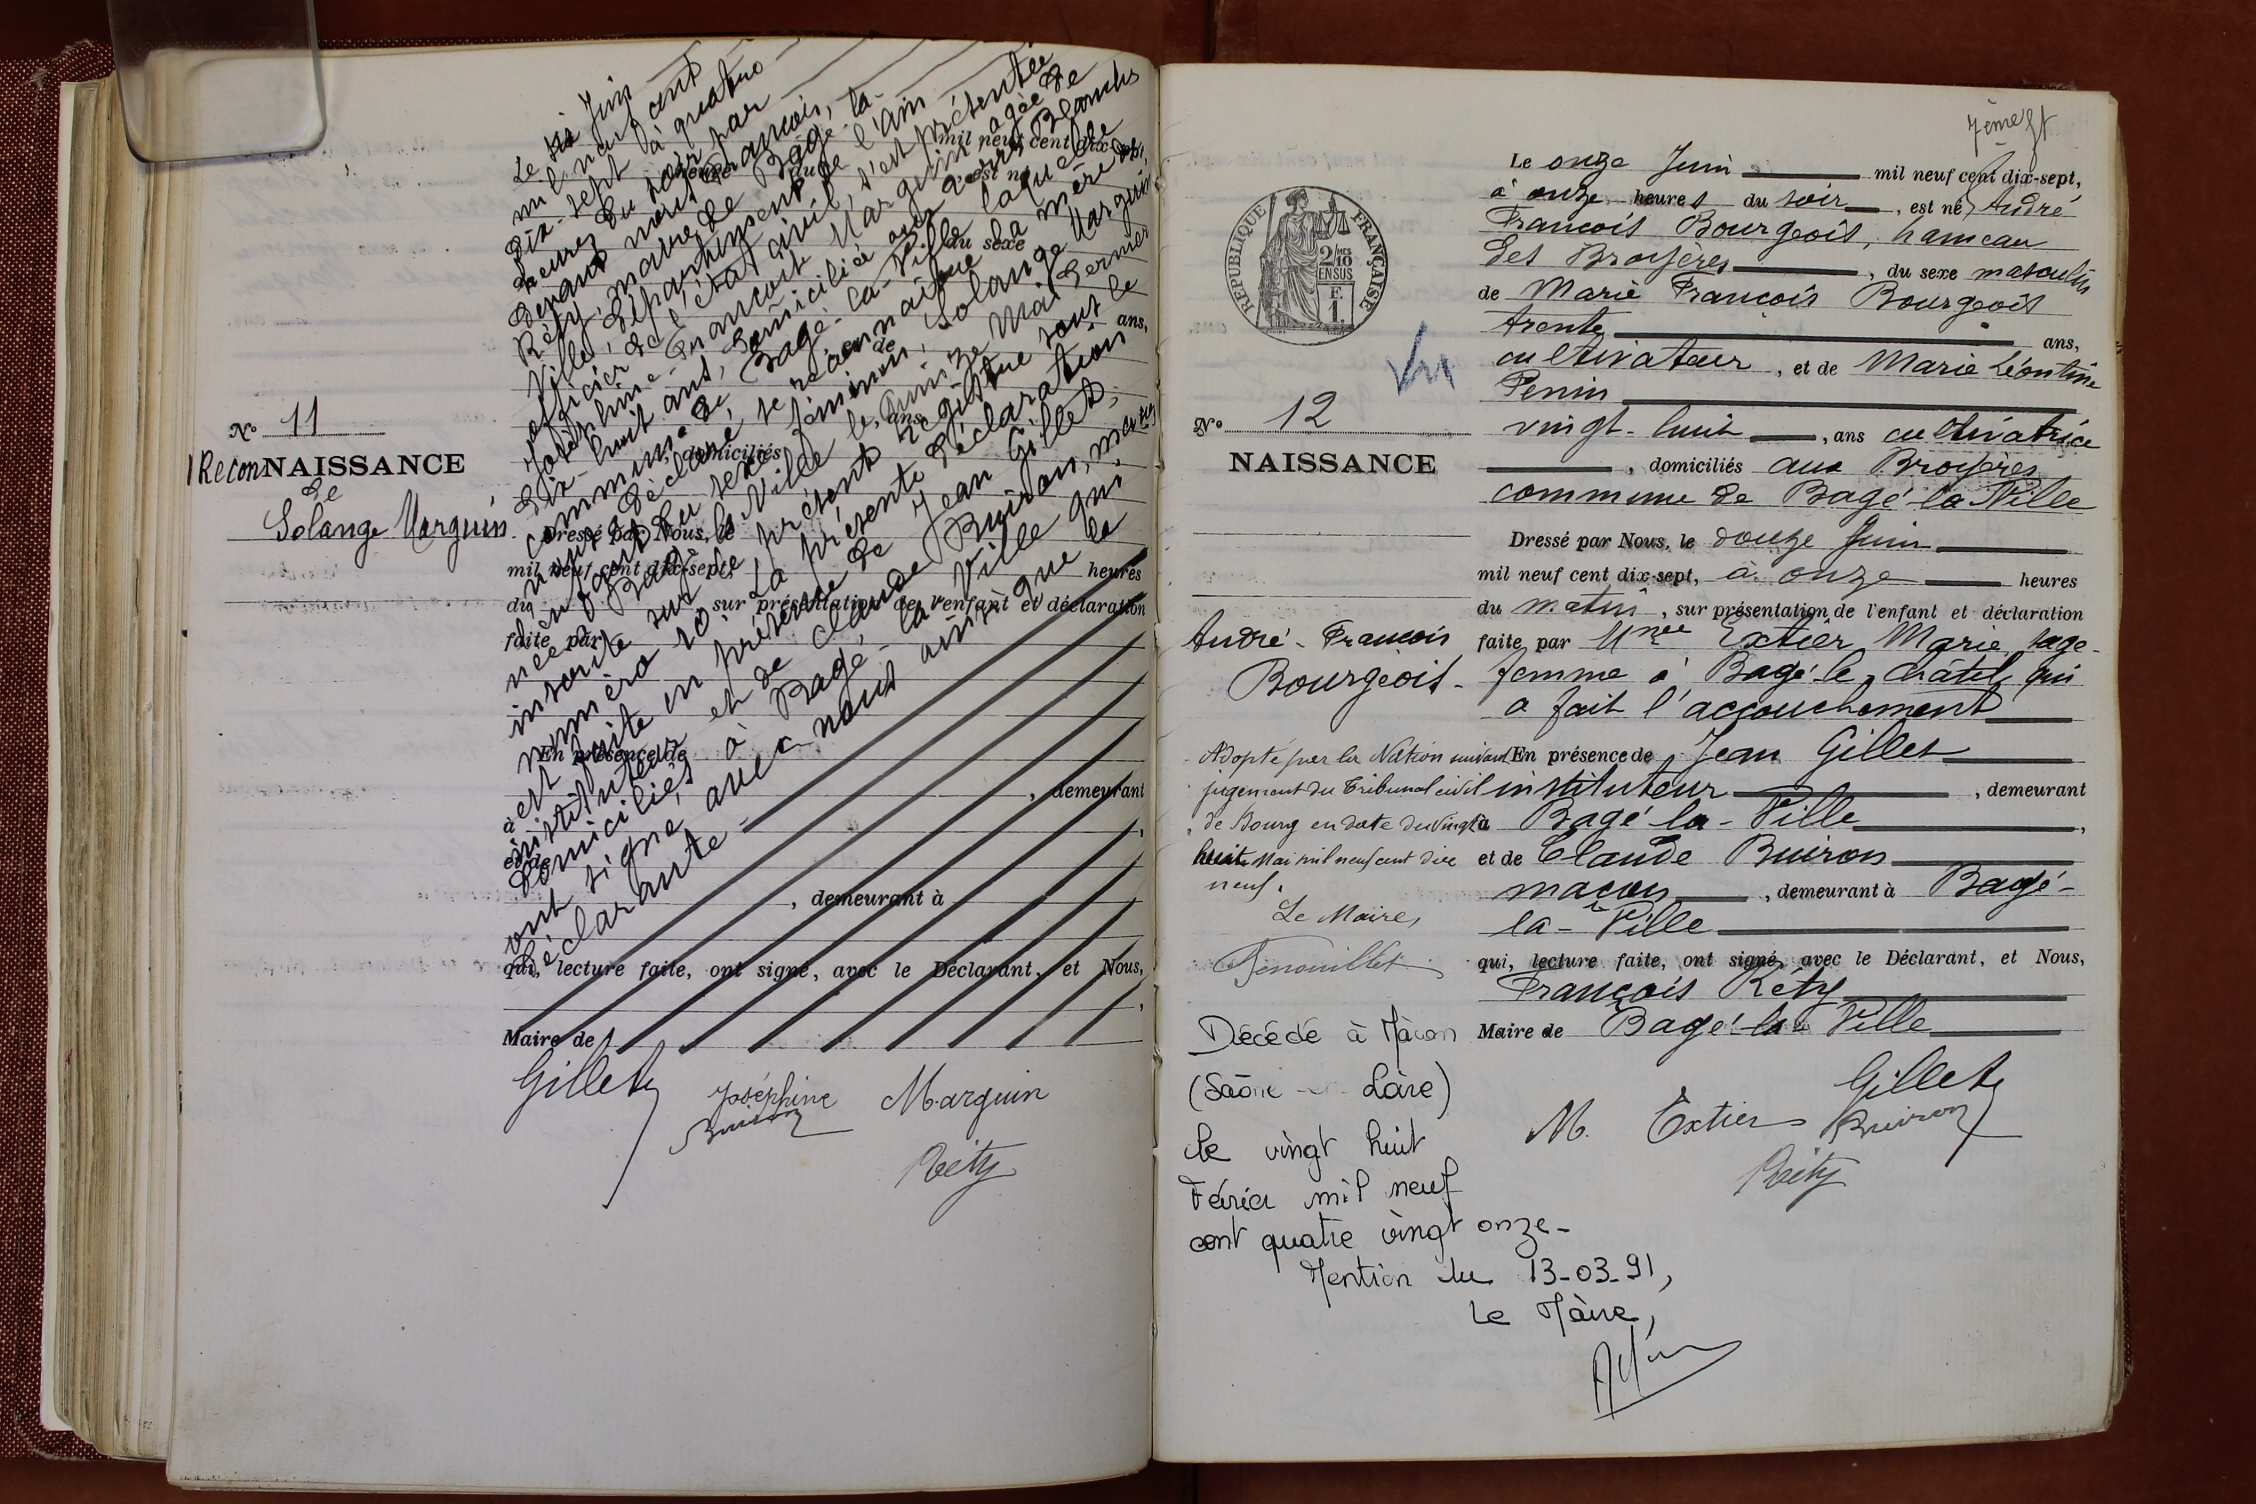 N° 11
ReconNAISSANCE
de
Solange Marguin
Le six Juin
mil neuf cent
dix-sept à quatre
heures du soir par
devant nous François,
Réty, maire de Bâgé-la-
Ville, département de l'Ain
officier de l'état civil, s'est présentée
Joséphine Marguin agée de
dix-huit ans, domiciliée aux Terres Blanches
commune de Bâgé-la-Ville laquelle
nous a déclaré se reconnaître la mère d'un
enfant du sexe féminin, Solange Marguin
née à Bagé-la-Ville le quinze mai dernier
inscrite sur le présent registre sous le
numéro 10. La présente déclaration
est faite en présence de Jean Gillet,
instituteur et de Claude Buiron, maçon,
domiciliés à Bagé-la-Ville qui
ont signé avec nous ainsi que la
déclarante
mil neuf cent dix-sept,
heures du
est né
du sexe
de
ans,
ans
domiciliés
Dressé par Nous, le
mil neuf cent dix-sept, heures
du sur présentation de l'enfant et déclaration
faite par
En présence de
, demeurant
à
et de
, demeurant à
qui, lecture faite, ont signé, avec le Déclarant, et Nous,
Maire de
Gillet Joséphine Marguin
Buiron
Réty
7ème ft
Le onze Juin mil neuf cent dix-sept,
à onze heures du soir, est né André
François Bourgeois, hameau
des Broyères, du sexe masculin
de Marie François Bourgeois
trente ans,
cultivateur, et de Marie Léontine
Penin
vingt-huit, ans cultivatrice
, domiciliés aux Broyères
commune de Bagé-la-Ville
Dressé par Nous, le douze Juin
mil neuf cent dix-sept, à onze heures
du matin, sur présentation de l'enfant et déclaration
faite par Mme Extier Marie, sage-
femme à Bagé-le-Châtel, qui
a fait l'accouchement
En présence de Jean Gillet
instituteur, demeurant
à Bagé-la-Ville,
et de Claude Buiron
maçon, demeurant à Bagé-
la-Ville
qui, lecture faite, ont signé, avec le Déclarant, et Nous,
François Réty
Maire de Bagé-la-Ville
Gillet
M. Extier Buiron
Réty
RÉPUBLIQUE FRANÇAISE
2/10
EN SUS
F.
1.
N° 12
NAISSANCE
André-François
Bourgeois-
Adopté par la Nation suivant
jugement du Tribunal civil
de Bourg en date du vingt
huit Mai mil neuf cent dix
neuf.
Le Maire,
Fenouillet
Décédé à Mâcon
(Saône et Loire)
le vingt huit
Février mil neuf
cent quatre vingt onze-
Mention du 13-03-91,
Le Maire,